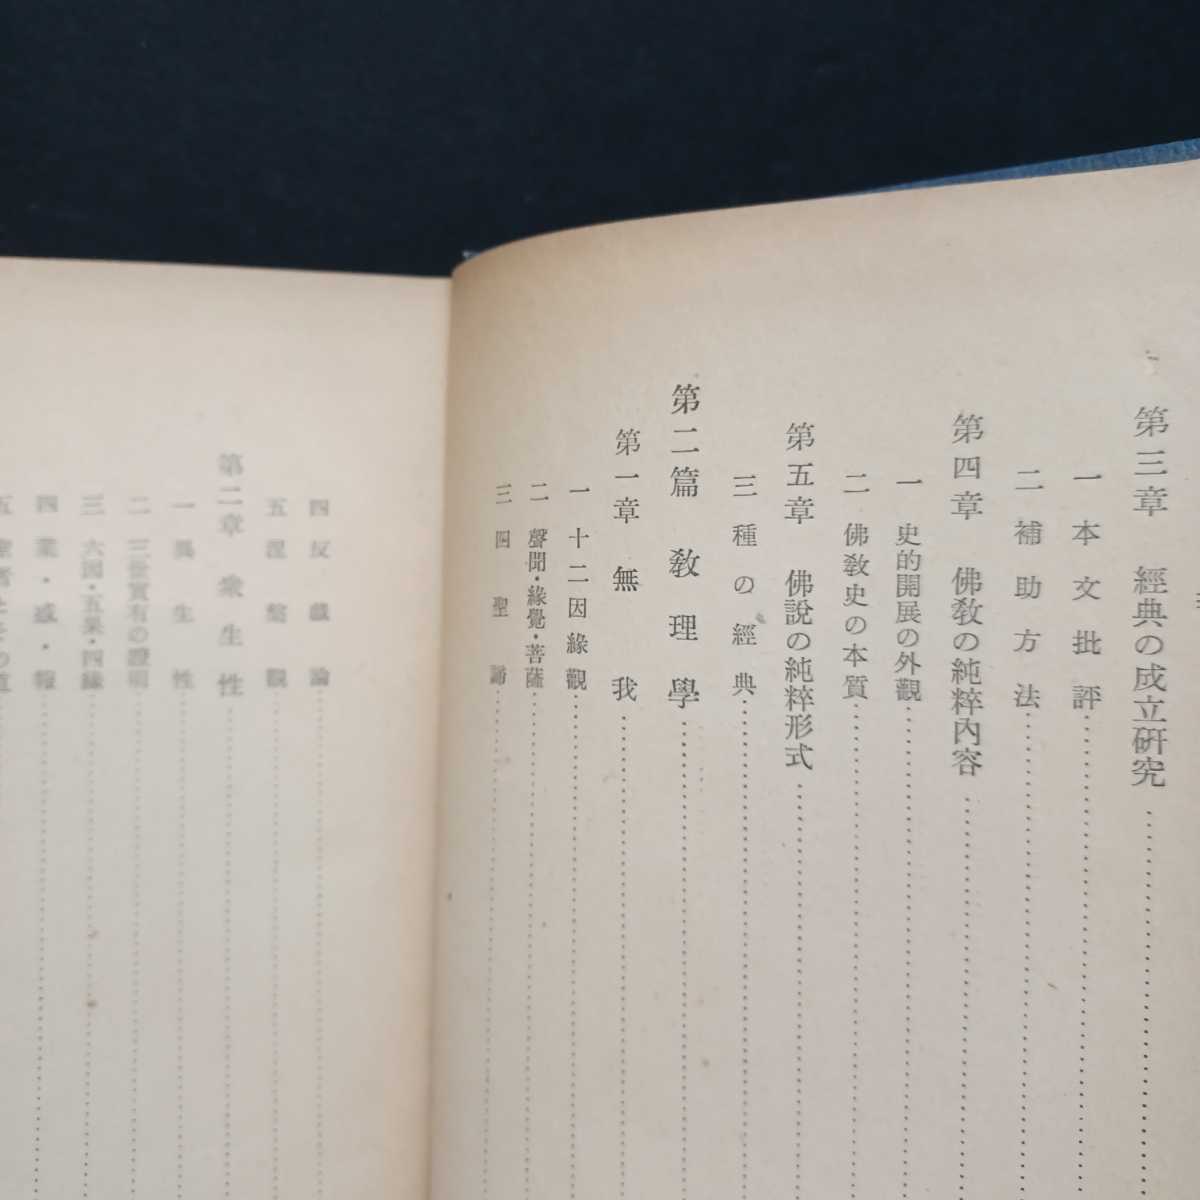 第三章 經典の成立硏究
一 本文批評
二 補助方法
第四章 佛敎の純粹內容
一 史的開展の外觀
二 佛敎史の本質
第五章 佛說の純粹形式
三種の經典
第二篇 敎理學
第一章 無我
一 十二因緣觀
二 聲聞・緣覺・菩薩
三 四聖諦
四 反戲論
五 涅槃觀
第二章 衆生性
一 異生性
二 三世實有の證明
三 六因・五果・四緣
四 業・惑・報
五 聖者とその道